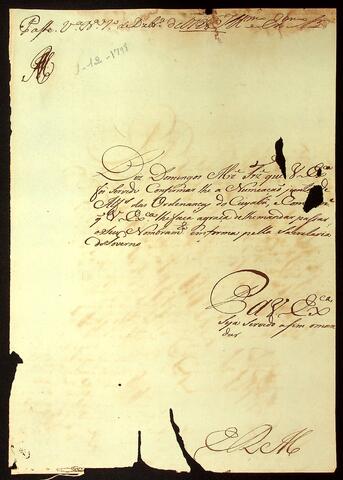 Passe. V.ª B.ª 1.º de Dezbr.º de 1798
1-12-1798
Diz Domingos Mel Frz que V. Ex.ca
foi servido Confirmar lhe a Numiação junta de
Alfs das Ordenanças do Cuyabá, e Como
q V. Exca lhe faça a graça de lhe mandar passar
o seu Nombram.to em forma pella Secretaria
do Governo
Pa V. Ex.ca
Seja Servido assim o man
dar
E R M